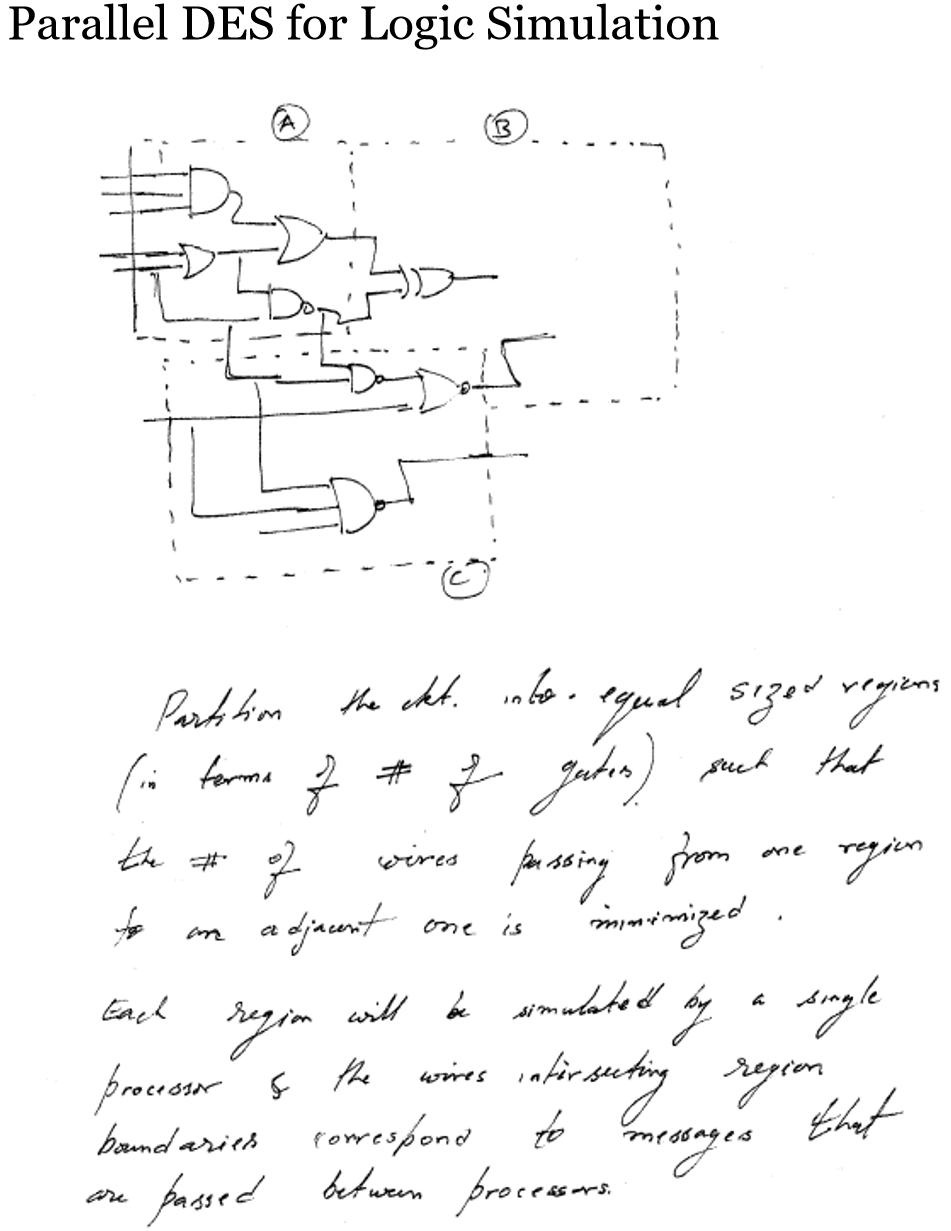 Parallel DES for Logic Simulation
A
B
C
Partition the ckt. into equal sized regions
(in terms of # of gates) such that
the # of wires passing from one region
to an adjacent one is minimized.
Each region will be simulated by a single
processor & the wires intersecting region
boundaries correspond to messages that
are passed between processors.